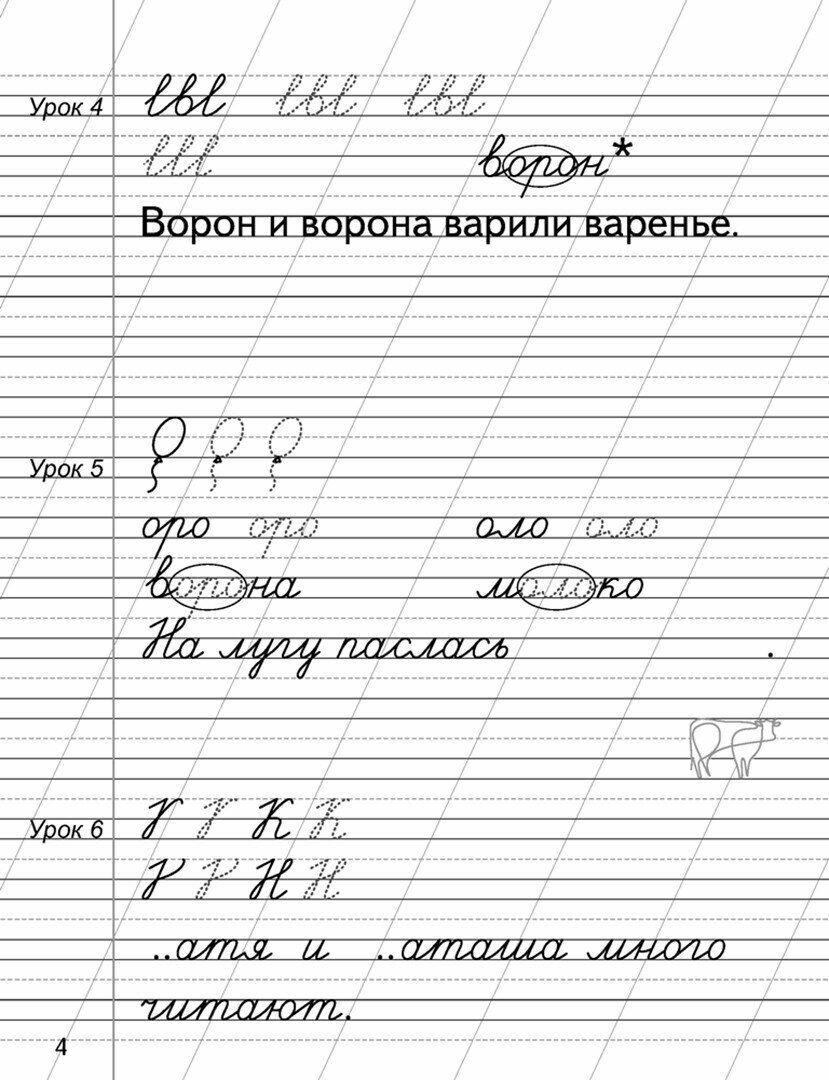 Урок 4 lвl lвl lвl
lll ворон*
Ворон и ворона варили варенье.
Урок 5
оро оро оло оло
ворона молоко
На лугу паслась .
Урок 6 Г Г К К
Р Р Н Н
..атя и ..аташа много
читают.
4